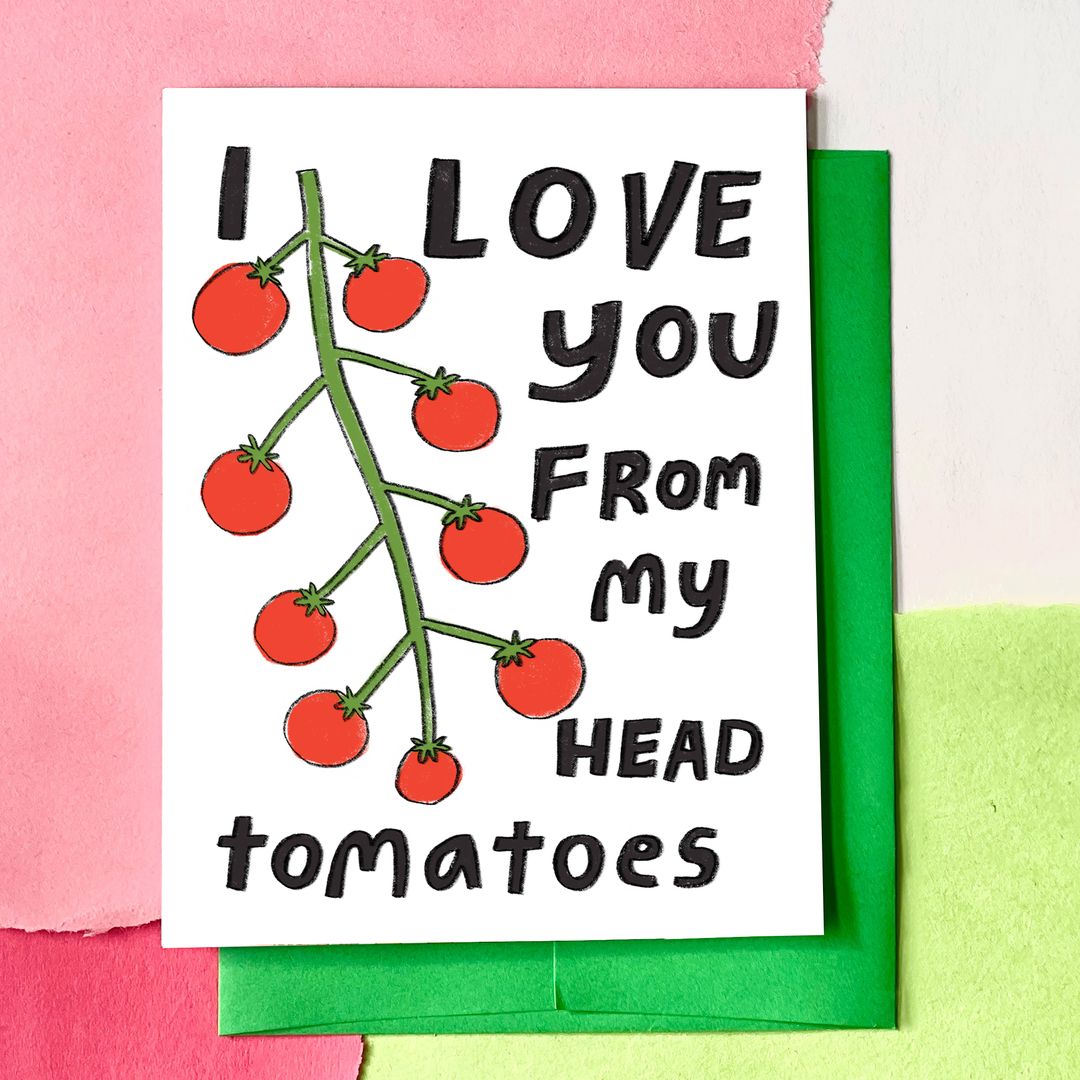 I LOVE
YOU
FROM
MY
HEAD
tomatoes